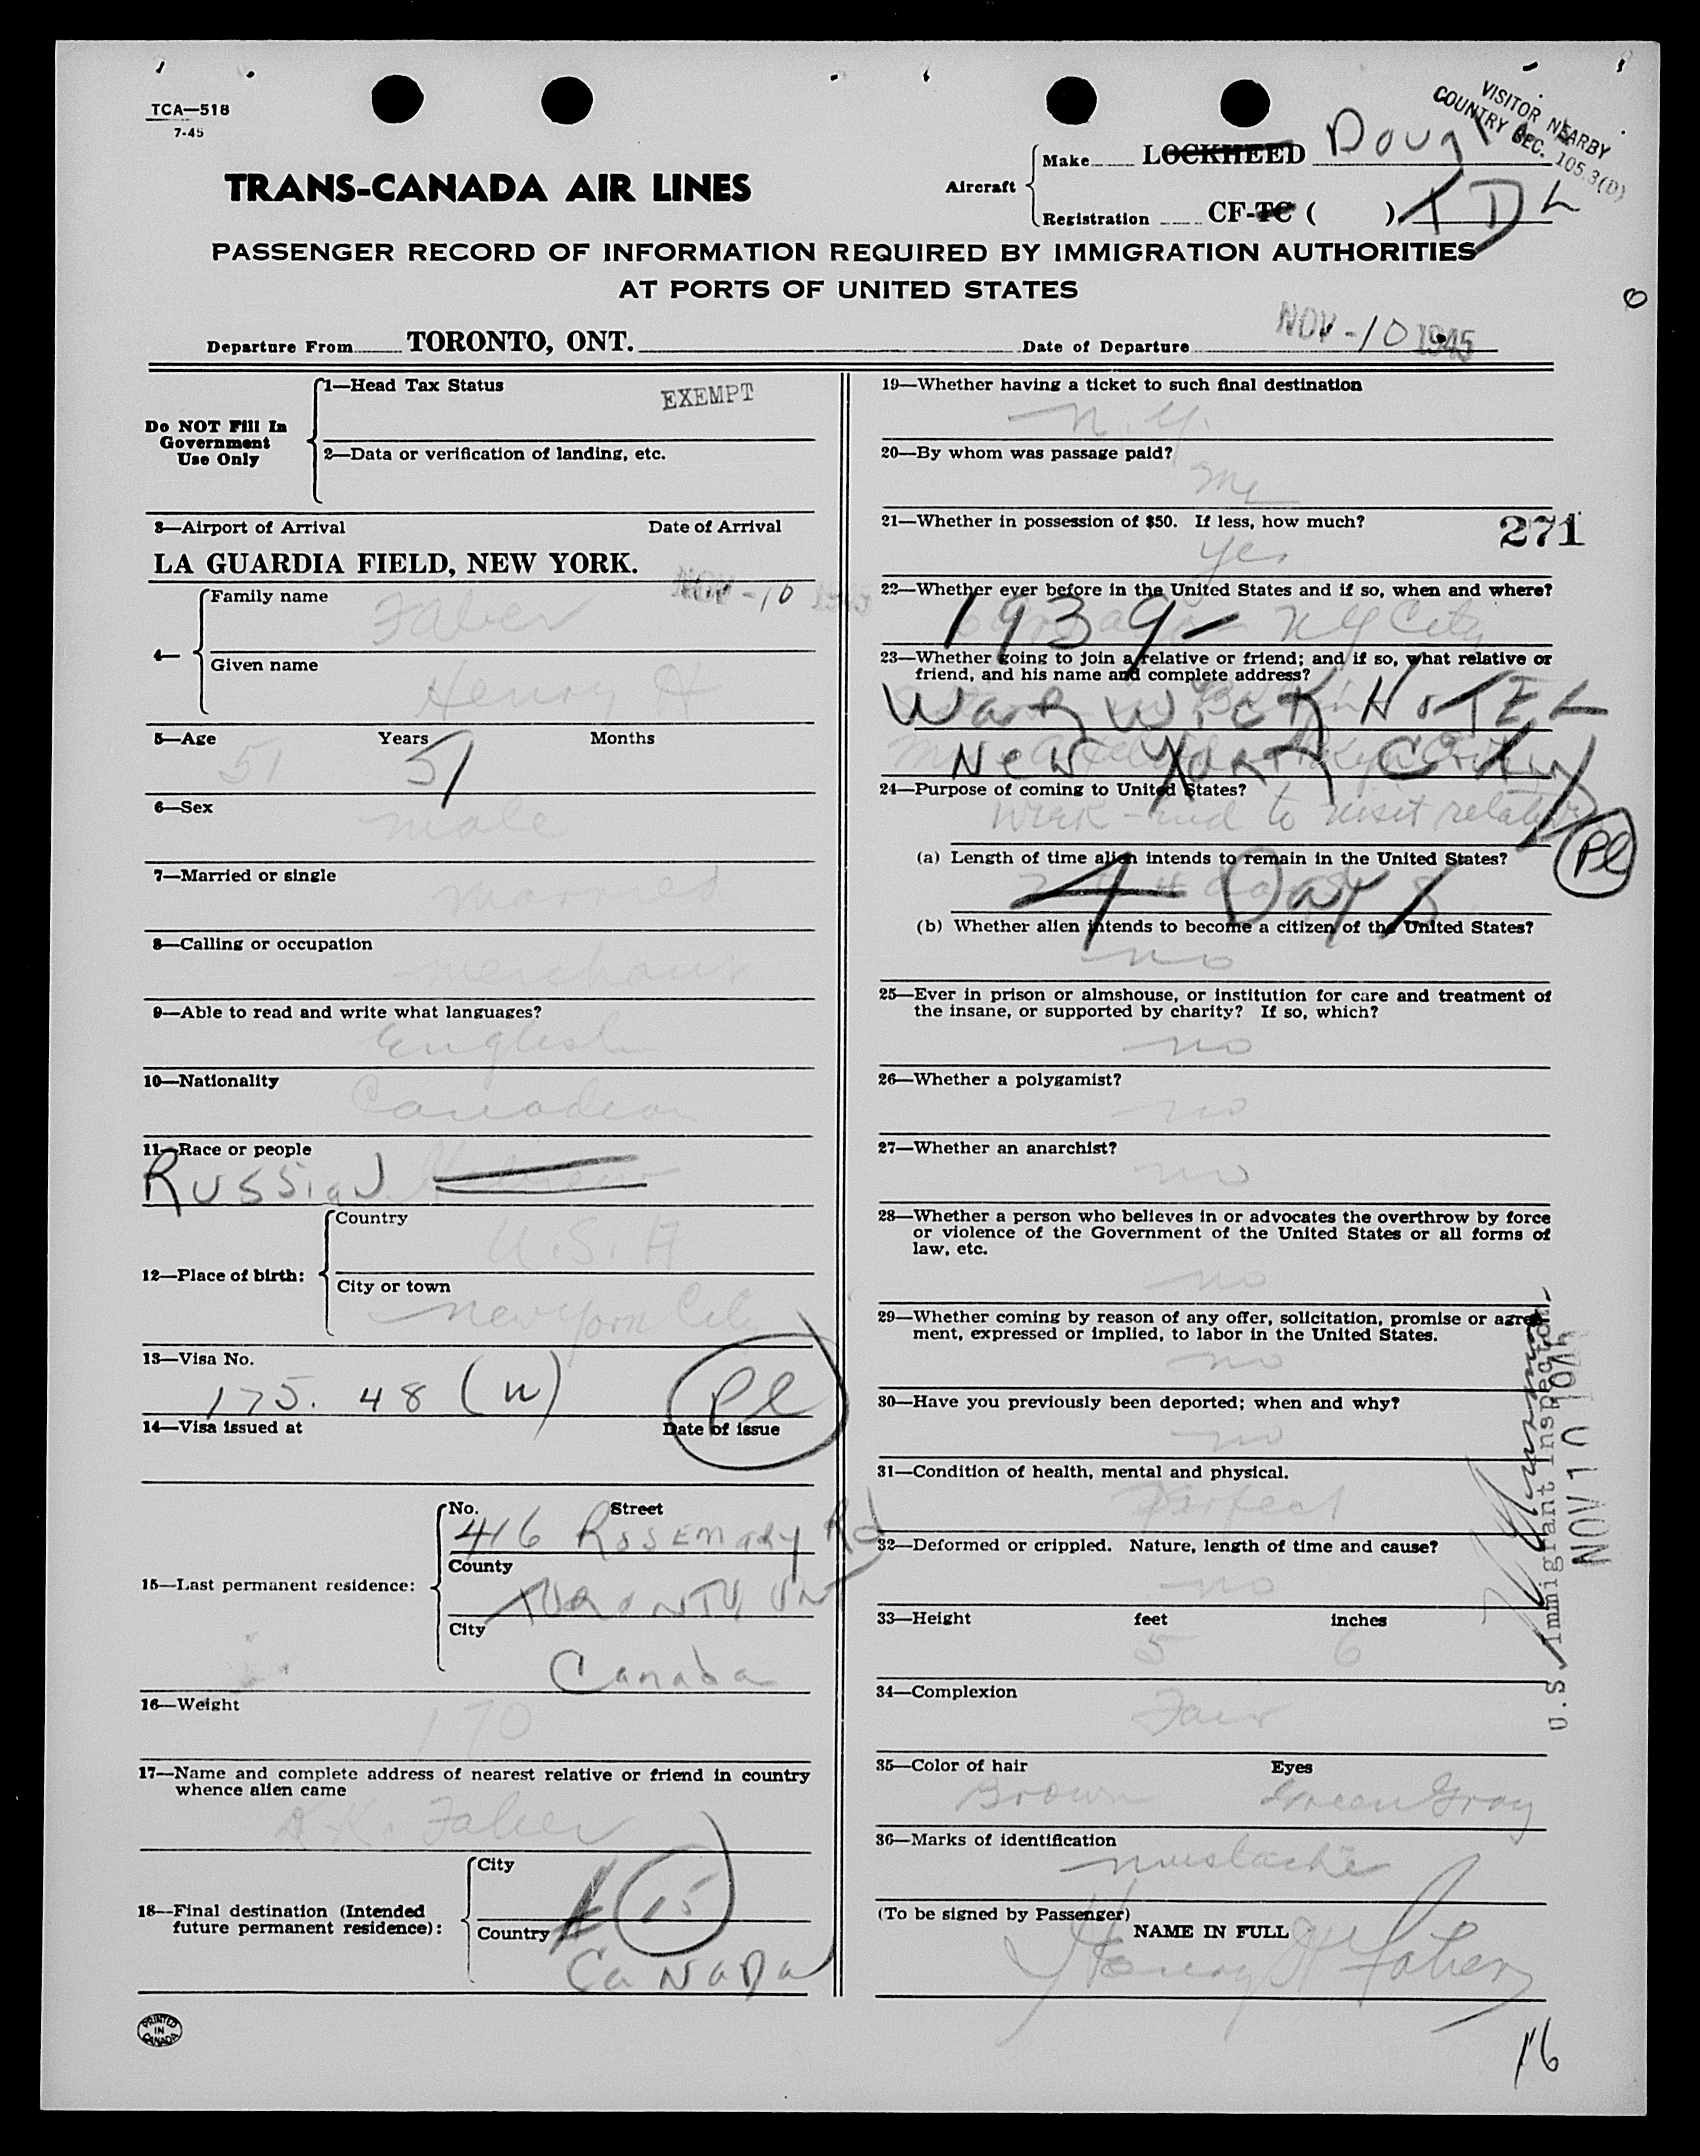 TCA—518
7-45
VISITOR NEARBY
COUNTRY SEC. 105.3(D)
TRANS-CANADA AIR LINES
Aircraft
Make LOCKHEED Douglas
Registration CF-TC ( ) TDL
PASSENGER RECORD OF INFORMATION REQUIRED BY IMMIGRATION AUTHORITIES
AT PORTS OF UNITED STATES
Departure From TORONTO, ONT. Date of Departure NOV -10 1945
Do NOT Fill In
Government
Use Only
1—Head Tax Status EXEMPT
2—Data or verification of landing, etc.
3—Airport of Arrival Date of Arrival
LA GUARDIA FIELD, NEW YORK. NOV -10 1945
4—
Family name
Faber
Given name
Henry H
5—Age Years Months
51 51
6—Sex
male
7—Married or single
married
8—Calling or occupation
merchant
9—Able to read and write what languages?
English
10—Nationality
Canadian
11—Race or people
RUSSIAN Hebrew
12—Place of birth:
Country
U.S.A
City or town
New York City
13—Visa No.
175. 48 (w) Pl
14—Visa issued at Date of issue
15—Last permanent residence:
No. Street
416 ROSEMARY Rd
County
TORONTO, ONT
City
Canada
16—Weight
170
17—Name and complete address of nearest relative or friend in country
whence alien came
K. Faber
18—Final destination (Intended
future permanent residence):
City
15
Country
CANADA
PRINTED
IN
CANADA
19—Whether having a ticket to such final destination
N.Y.
20—By whom was passage paid?
me
21—Whether in possession of $50. If less, how much? 271
yes
22—Whether ever before in the United States and if so, when and where?
1939- NY City
23—Whether going to join a relative or friend; and if so, what relative or
friend, and his name and complete address?
WARWICK HOTEL
NEW YORK CITY
24—Purpose of coming to United States?
Week-end to visit relatives
Pl
(a) Length of time alien intends to remain in the United States?
4 Days
(b) Whether alien intends to become a citizen of the United States?
no
25—Ever in prison or almshouse, or institution for care and treatment of
the insane, or supported by charity? If so, which?
no
26—Whether a polygamist?
no
27—Whether an anarchist?
no
28—Whether a person who believes in or advocates the overthrow by force
or violence of the Government of the United States or all forms of
law, etc.
no
29—Whether coming by reason of any offer, solicitation, promise or agree-
ment, expressed or implied, to labor in the United States.
no
30—Have you previously been deported; when and why?
no
31—Condition of health, mental and physical.
Perfect
32—Deformed or crippled. Nature, length of time and cause?
no
33—Height feet inches
5 6
34—Complexion
Fair
35—Color of hair Eyes
Brown Green Gray
36—Marks of identification
mustache
(To be signed by Passenger)
NAME IN FULL
Henry H Faber
U.S. Immigrant Inspector.
NOV 10 1945
16